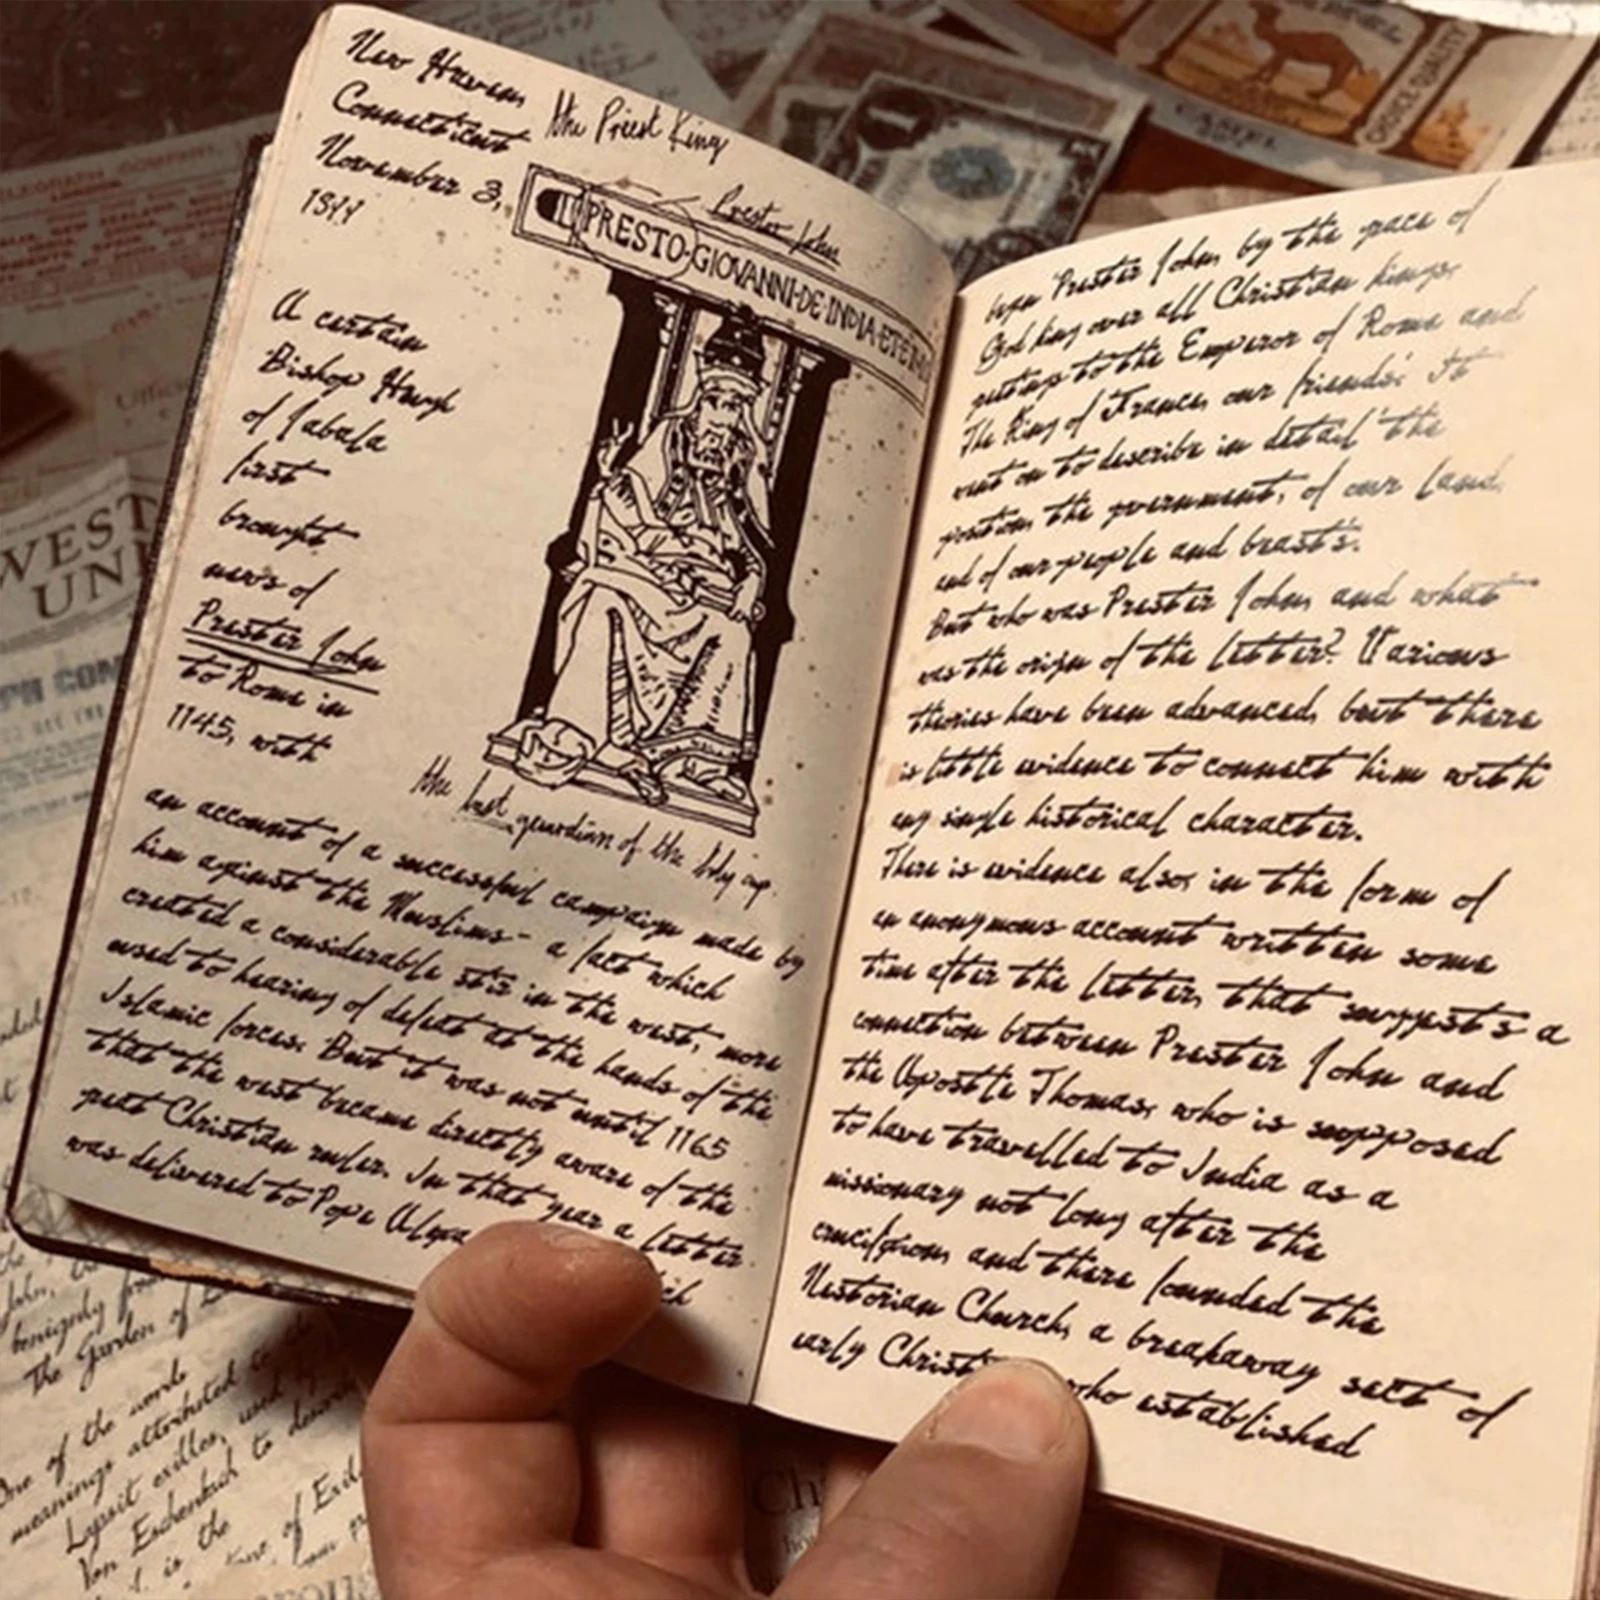 New Haven,
Connecticut
November 3,
the Priest King
Prester John
PRESTO·GIOVANNI·DE·INDIA·ET·
A certain
Bishop Haugh
of Jabala
first
brought
news of
Prester John
to Rome in
1145, with
the last guardian of the holy cup.
an account of a successful campaign made by
him against the Muslims - a fact which
created a considerable stir in the west, more
used to hearing of defeat at the hands of the
Islamic forces. But it was not until 1165
that the west became directly aware of the
great Christian ruler. In that year a letter
was delivered to Pope
began 'Prester John, by the grace of
God king over all Christian kings,
greetings to the Emperor of Rome and
The King of France, our friends.' It
went on to describe in detail 'the
position, the government, of our land,
and of our people and beasts'.
But who was Prester John, and what
was the origin of the letter? Various
theories have been advanced, but there
is little evidence to connect him with
any single historical character.
There is evidence also, in the form of
an anonymous account written some
time after the letter, that suggests a
connection between Prester John and
the Apostle Thomas, who is supposed
to have travelled to India as a
missionary not long after the
crucifixion, and there founded the
Nestorian Church, a breakaway sect of
early who established
WEST
UNI
CHOICE QUALITY
1
John,
benignly
The Garden of
One of the words
meanings attributed to
Lapsit exilles, used by
Von Eschenbach to
is the
of Exil
Ch